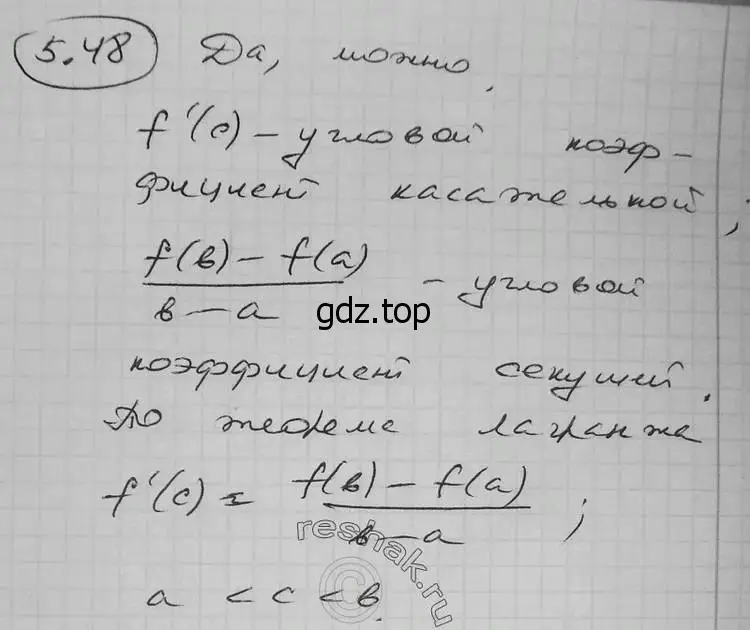 5.48 Да, можно.
f'(c) – угловой коэф-
фициент касательной;
f(b) – f(a)
b – a
– угловой
gdz.top
коэффициент секущей.
По теореме лагранжа
f'(c) = f(b) – f(a) ;
b – a
reshak.ru
a < c < b.